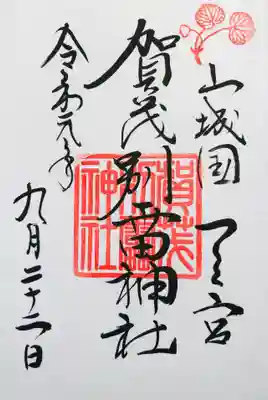 山城国 一之宮
賀茂別雷神社
令和元年
九月二十二日
賀茂別雷神社